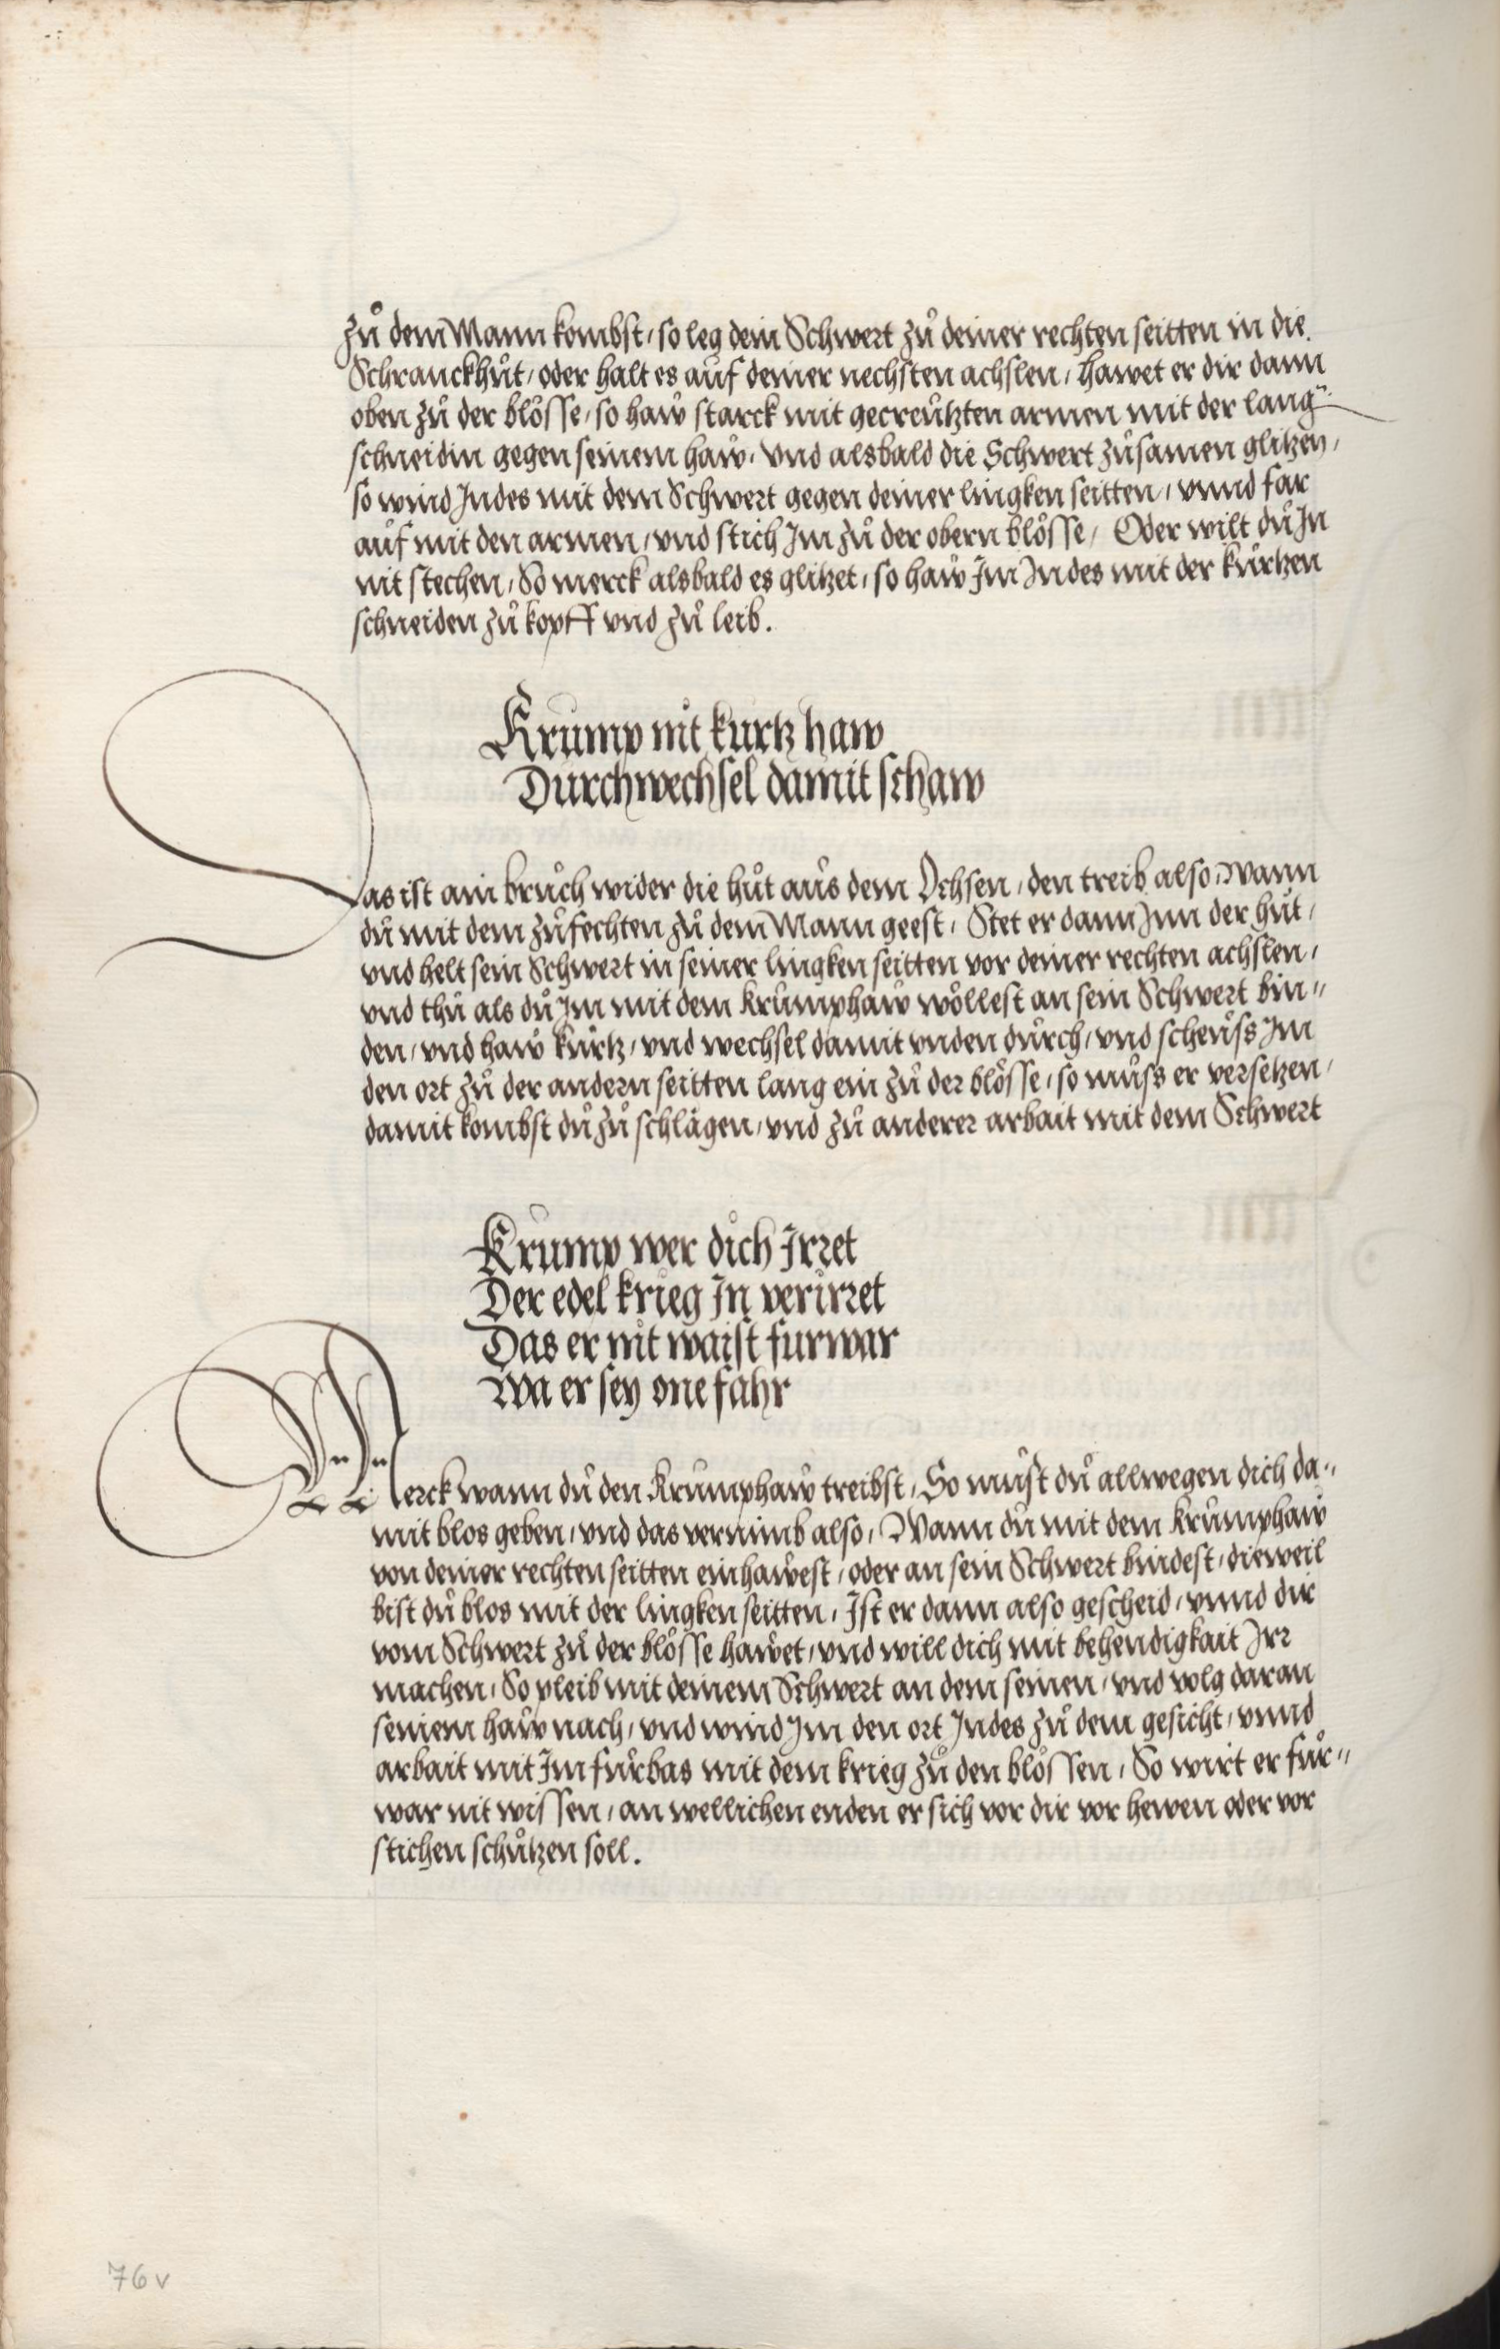 zů dem Mann kombst, so leg dein Schwert zů deiner rechten seitten in die
Schranckhůt, oder halt es auf deiner rechsten achslen, hawet er dir dann
oben zů der blösse, so haw starck mit gecreutzten armen mit der lang
schneidin gegen seinem haw, vnd alsbald die Schwert zůsamen glitzen,
so wind Indes mit dem Schwert gegen deiner lingken seitten, vnnd far
auf mit den armen, vnd stich Im zů der obern blösse, Oder wilt dů In
nit stechen, So merck alsbald es glitzet, so haw Im Indes mit der kurtzen
schneiden zů kopff vnd zů leib.
Krump nit kurtz haw
Durchwechsel damit schaw
Das ist ain bruch wider die hůt aus dem Ochsen, den treib also, Wann
dů mit dem zůfechten zů dem Mann geest, Stet er dann Inn der hůt,
vnd helt sein Schwert in seiner lingken seitten vor deiner rechten achslen,
vnd thů als dů Im mit dem Krumphaw wöllest an sein Schwert bin=
den, vnd haw kurtz, vnd wechsel damit vnden durch, vnd scheuss Im
den ort zů der andern seitten lang ein zů der blösse, so můss er versetzen,
damit kombst dů zů schlägen, vnd zů anderer arbait mit dem Schwert
Krump wer dich Irret
Der edel krieg In verirret
Das er nit waist furwar
Wa er sey one fahr
Merck wann dů den Krumphaw treibst, So můst dů allwegen dich da=
mit blos geben, vnd das vernimb also, Wann dů mit dem Krumphaw
von deiner rechten seitten einhawest, oder an sein Schwert bindest, dieweil
bist dů blos mit der lingken seitten, Ist er dann also gescheid, vnnd dir
vom Schwert zů der blösse hawet, vnd will dich mit behendigkait Irr
machen, So pleib mit deinem Schwert an dem seinen, vnd volg daran
seinem haw nach, vnd wind Im den ort Indes zů dem gesicht, vnnd
arbait mit Im fůrbas mit dem krieg zů den blössen, So wirt er fůr=
war nit wissen, an wellichen enden er sich vor dir vor hewen oder vor
stichen schůtzen soll.
76v